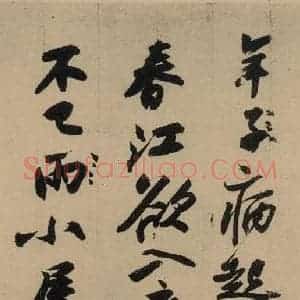 年子病起
春江欲入
不已雨小屋
Shufaziliao.COM